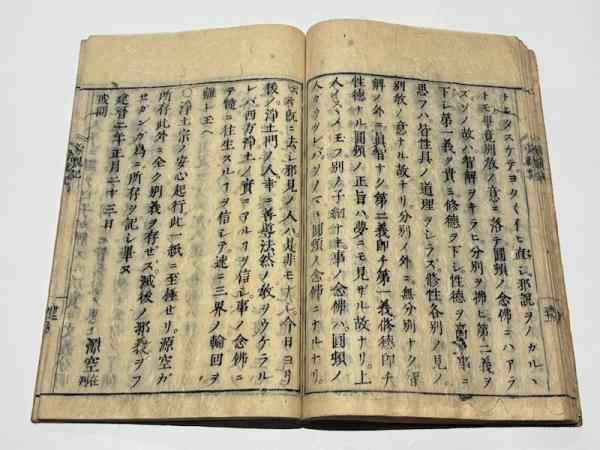 ナヒタスケテヨクイヒ直シ邪説ヲノカルヽ
トモ畢竟別教ノ意ニ落テ圓頓ノ念佛ニハアラ
スソノ故ハ智解ヲキラヒ分別ヲ拂ヒ第二義ヲ
下シ第一義ヲ貴ミ修德ヲ下シ性德ヲ高キ事ニ
思フハ皆性具ノ道理ヲシラス修性各別ノ見ノ
別教ノ意ナル故ナリ分別ノ外ニ無分別ナク智
解ノ外ニ眞智ナク第二義即チ第一義修德即チ
性德ナル圓頓ノ正旨ハ夢ニモ見サル故ナリ上
人カヽスヽメ玉フ別ノ子細ナキ事ノ念佛ハ圓頓ノ
人カウツレバソノマヽ圓頓ノ念佛ニナルナリ
既ニ去シ邪見ノ人ハ是非モナシ今日ヨリ
後ノ淨土門ノ人幸ニ善導法然ノ教ヲウケラル
レバ西方淨土ノ實ニアルヿヲ信シ事ノ念佛ニ
テ慥ニ往生スルヿヲ信シテ速ニ三界ノ輪回ヲ
離レ玉ヘ
〇淨土宗ノ安心起行此一紙ニ至極セリ源空カ
所存此外ニ全ク別義ヲ存ゼス滅後ノ邪義ヲフ
セカンカ爲ニ所存ヲ記シ畢ヌ
建曆二年正月二十三日　源空在判
或問